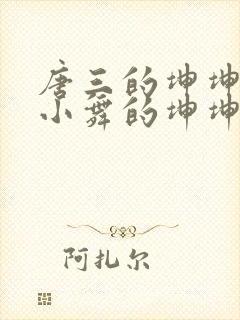 唐三的坤坤
小舞的坤坤
阿扎尔